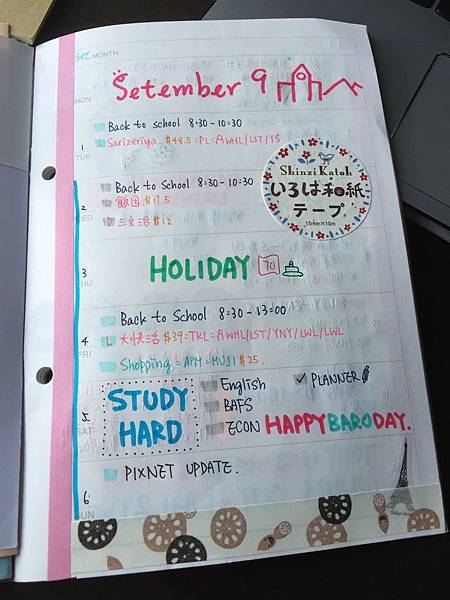 set MONTH
Setember 9
MON
Back to school 8:30-10:30
1 Sarizeriya. $48.5=PL=AWHL/LST/YS
TUE
Shinzi Katoh
いろは和紙
テープ
15mm×10m
Back to School 8:30-10:30
2 飯団 $17.5
WED
三文治 $12
3 HOLIDAY 70
THU
Back to School 8:30-13:00
4 L 大快活 $39=TKL=AWHL/LST/YNY/LWL/LWL
FRI
Shopping=APM=MUJI $25.
STUDY
HARD
English
✓ PLANNER
5 BAFS
SAT
ECON HAPPY BARODAY.
PIXNET UPDATE.
6
SUN